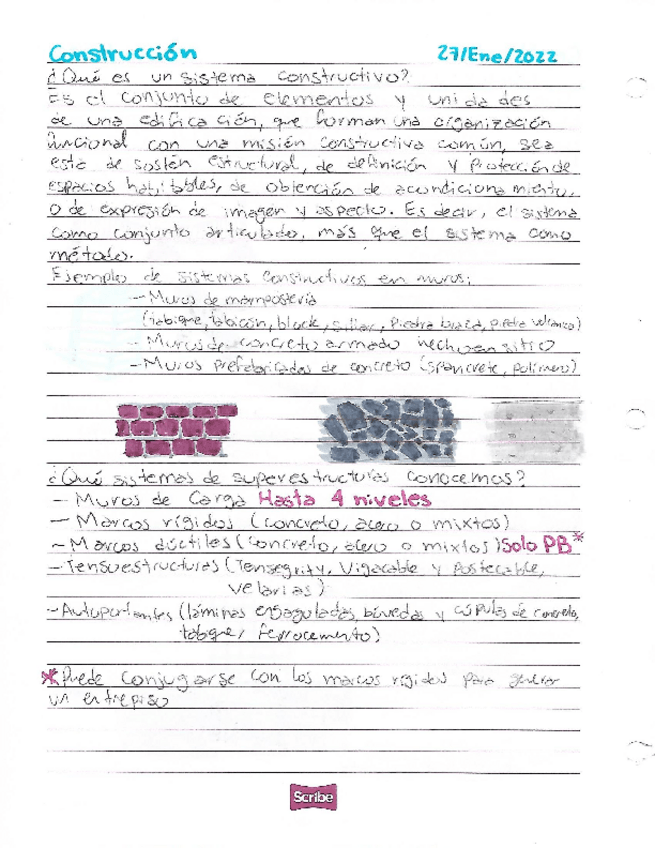 Construcción 27/Ene/2022
¿Qué es un sistema constructivo?
Es el conjunto de elementos y unidades
de una edificación, que forman una organización
funcional con una misión constructiva común, sea
esta de sostén estructural, de definición y protección de
espacios habitables, de obtención de acondicionamiento,
o de expresión de imagen y aspecto. Es decir, el sistema
como conjunto articulado, más que el sistema como
método.
Ejemplo de sistemas constructivos en muros:
- Muros de mampostería
(tabique, tabicón, block, sillar, piedra braza, piedra volcánica)
- Muros de concreto armado hecho en sitio
- Muros prefabricados de concreto (spancrete, polímero)
¿Qué sistemas de superestructuras conocemos?
- Muros de Carga Hasta 4 niveles
- Marcos rígidos (concreto, acero o mixtos)
- Marcos dúctiles (concreto, acero o mixtos) Solo PB*
- Tensoestructuras (Tensegrity, Vigacable y Postecable,
velarias)
- Autoportantes (láminas engaguladas, bóvedas y cúpulas de concreto,
tabique, ferrocemento)
*Puede conjugarse con los marcos rígidos para generar
un entrepiso
Scribe